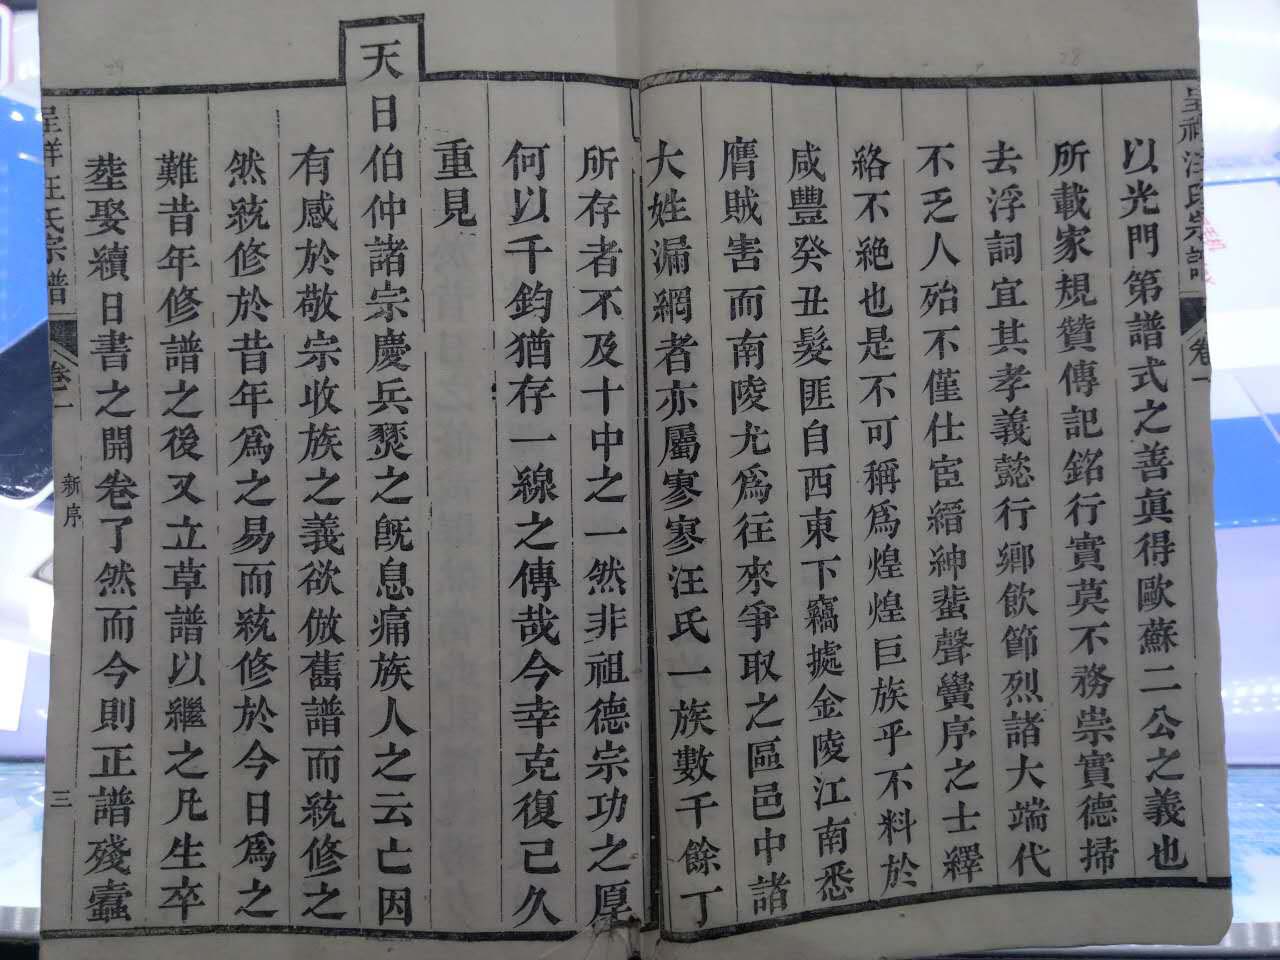 以光門第譜式之善眞得歐蘇二公之義也
所載家規贊傳記銘行實莫不務崇實德掃
去浮詞宜其孝義懿行鄉飲節烈諸大端代
不乏人殆不僅仕宦縉紳蜚聲黌序之士繹
絡不絶也是不可稱爲煌煌巨族乎不料於
咸豐癸丑髮匪自西東下竊據金陵江南悉
膺賊害而南陵尤爲往來爭取之區邑中諸
大姓漏網者亦屬寥寥汪氏一族數千餘丁
所存者不及十中之一然非祖德宗功之厚
何以千鈞猶存一線之傳哉今幸克復已久
重見
天日伯仲諸宗慶兵燹之旣息痛族人之云亡因
有感於敬宗收族之義欲倣舊譜而統修之
然統修於昔年爲之易而統修於今日爲之
難昔年修譜之後又立草譜以繼之凡生卒
塟娶續日書之開卷了然而今則正譜殘蠹
汪氏宗譜 卷一 新序 三